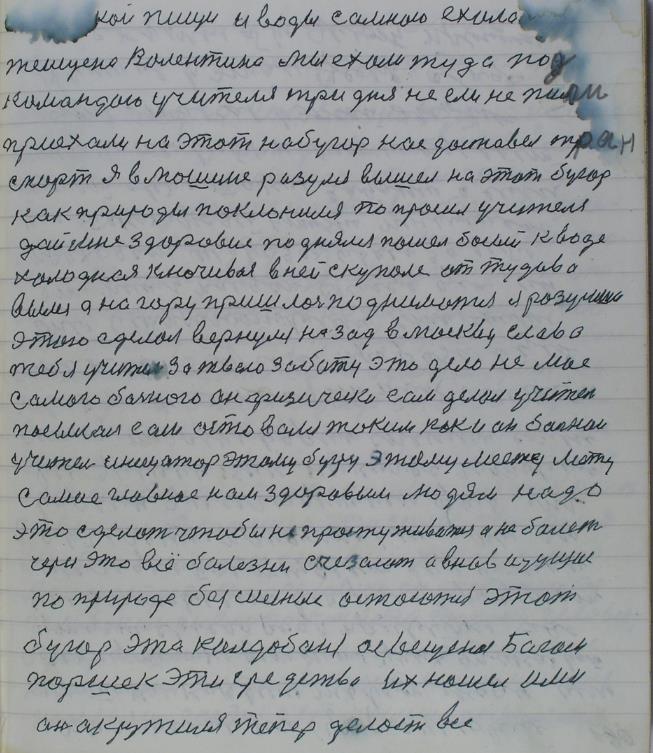 кой пищи и воды самною ехала
женщена Волентина мы ехали туда под
командою учителя три дня не ели не пили
приехали на этот набугор нас доставел тран
спорт я в мошине разулся вышел на этот бугор
как природы поклонился попросил учителя
дай мне здоровие поднялся пошел босый к воде
холодная ключивая в ней скупалс от тудыва
вышел а на гору пришлось подниматся я разумно
этого сделал вернулся назад в москву слава
тебя учител за твою заботу это дело не мое
самого больного он физически сам делал учител
посылал сам оставался таким как и он больной
учител инецатор этому бугру этому месту
самое главное нам здоровым людям надо
это сделат чтобы не простуживатся а не болет
через это всё болезни счезают а внов идущие
по природе бессменые остаются этот
бугор эта колдобаня освещена Богом
поршек эти средства их нашел ими
он окружился тепер делоет все